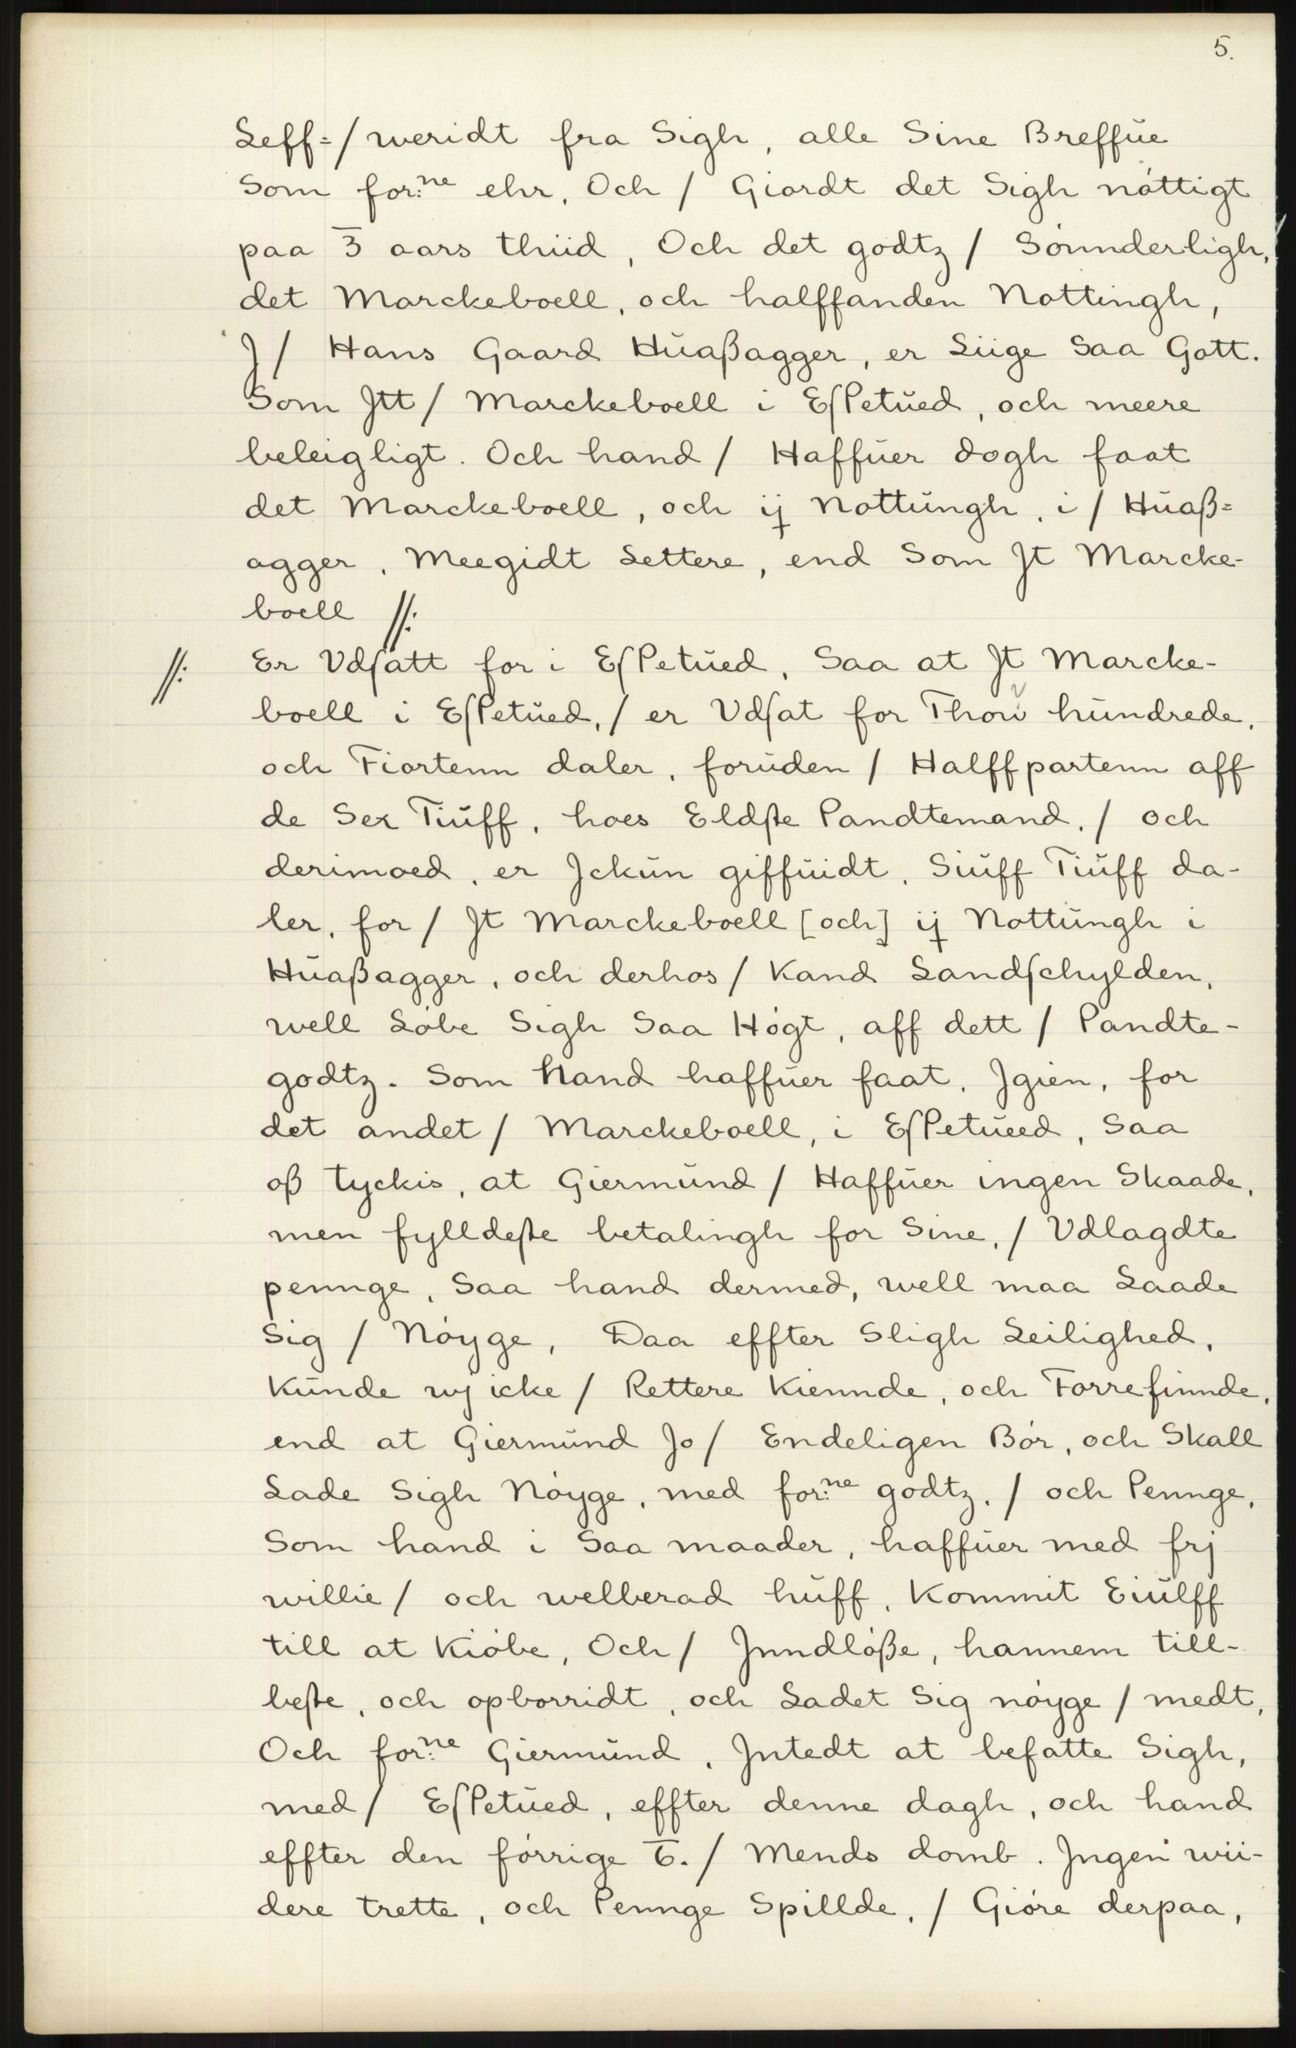 5.
Leff=/weridt fra Sigh, alle Sine Breffue
Som for:ne ehr, Och / Giordt det Sigh nöttigt
paa 3 aars thiid, Och det godtz / Sönnderligh,
det Marckeboell, och halffanden Nottingh,
J / Hans Gaard Huaßagger, er Liige Saa Gott.
Som Jtt / Marckeboell i EſPetued, och meere
beleigligt. Och hand / Haffuer dogh faat
det Marckeboell, och ij Nottungh, i / Huaß=
agger, Meegidt Lettere, end Som Jt Marcke-
boell //:
//: Er Vdſatt for i EſPetued, Saa at Jt Marcke-
boell i EſPetued, / er Vdſat for Thou hundrede,
och Fiortenn daler, foruden / Halffpartenn aff
de Sex Tiuff, hoes Eldſte Pandtemand, / och
derimoed, er Jckun giffuidt, Siuff Tiuff da-
ler, for / Jt Marckeboell [och] ij Nottungh i
Huaßagger, och derhos / Kand Landſchylden,
well Löbe Sigh Saa Högt, aff dett / Pandte-
godtz. Som Hand haffuer faat, Jgien, for
det andet / Marckeboell, i EſPetueed, Saa
oß tyckis, at Giermund / Haffuer ingen Skaade,
men fylldeſte betalingh for Sine, / Vdlagdte
pennge, Saa hand dermed, well maa Laade
Sig / Nöyge, Daa effter Sligh Leilighed,
Kunde wj icke / Rettere Kiennde, och Forrefinnde,
end at Giermund Jo / Endeligen Bör, och Skall
Lade Sigh Nöyge, med for:ne godtz, / och Pennge,
Som hand i Saa maader, haffuer med frj
willie / och welberad huff, Kommit Eiulff
till at Kiöbe, Och / Jnndlöße, hannem till-
beſte, och opborridt, och Ladet Sig nöyge / medt,
Och for:ne Giermund, Jntedt at befatte Sigh,
med / EſPetued, effter denne dagh, och hand
effter den förrige 6. / Mends domb. Jngen wii-
dere trette, och Pennge Spillde, / Giöre derpaa,